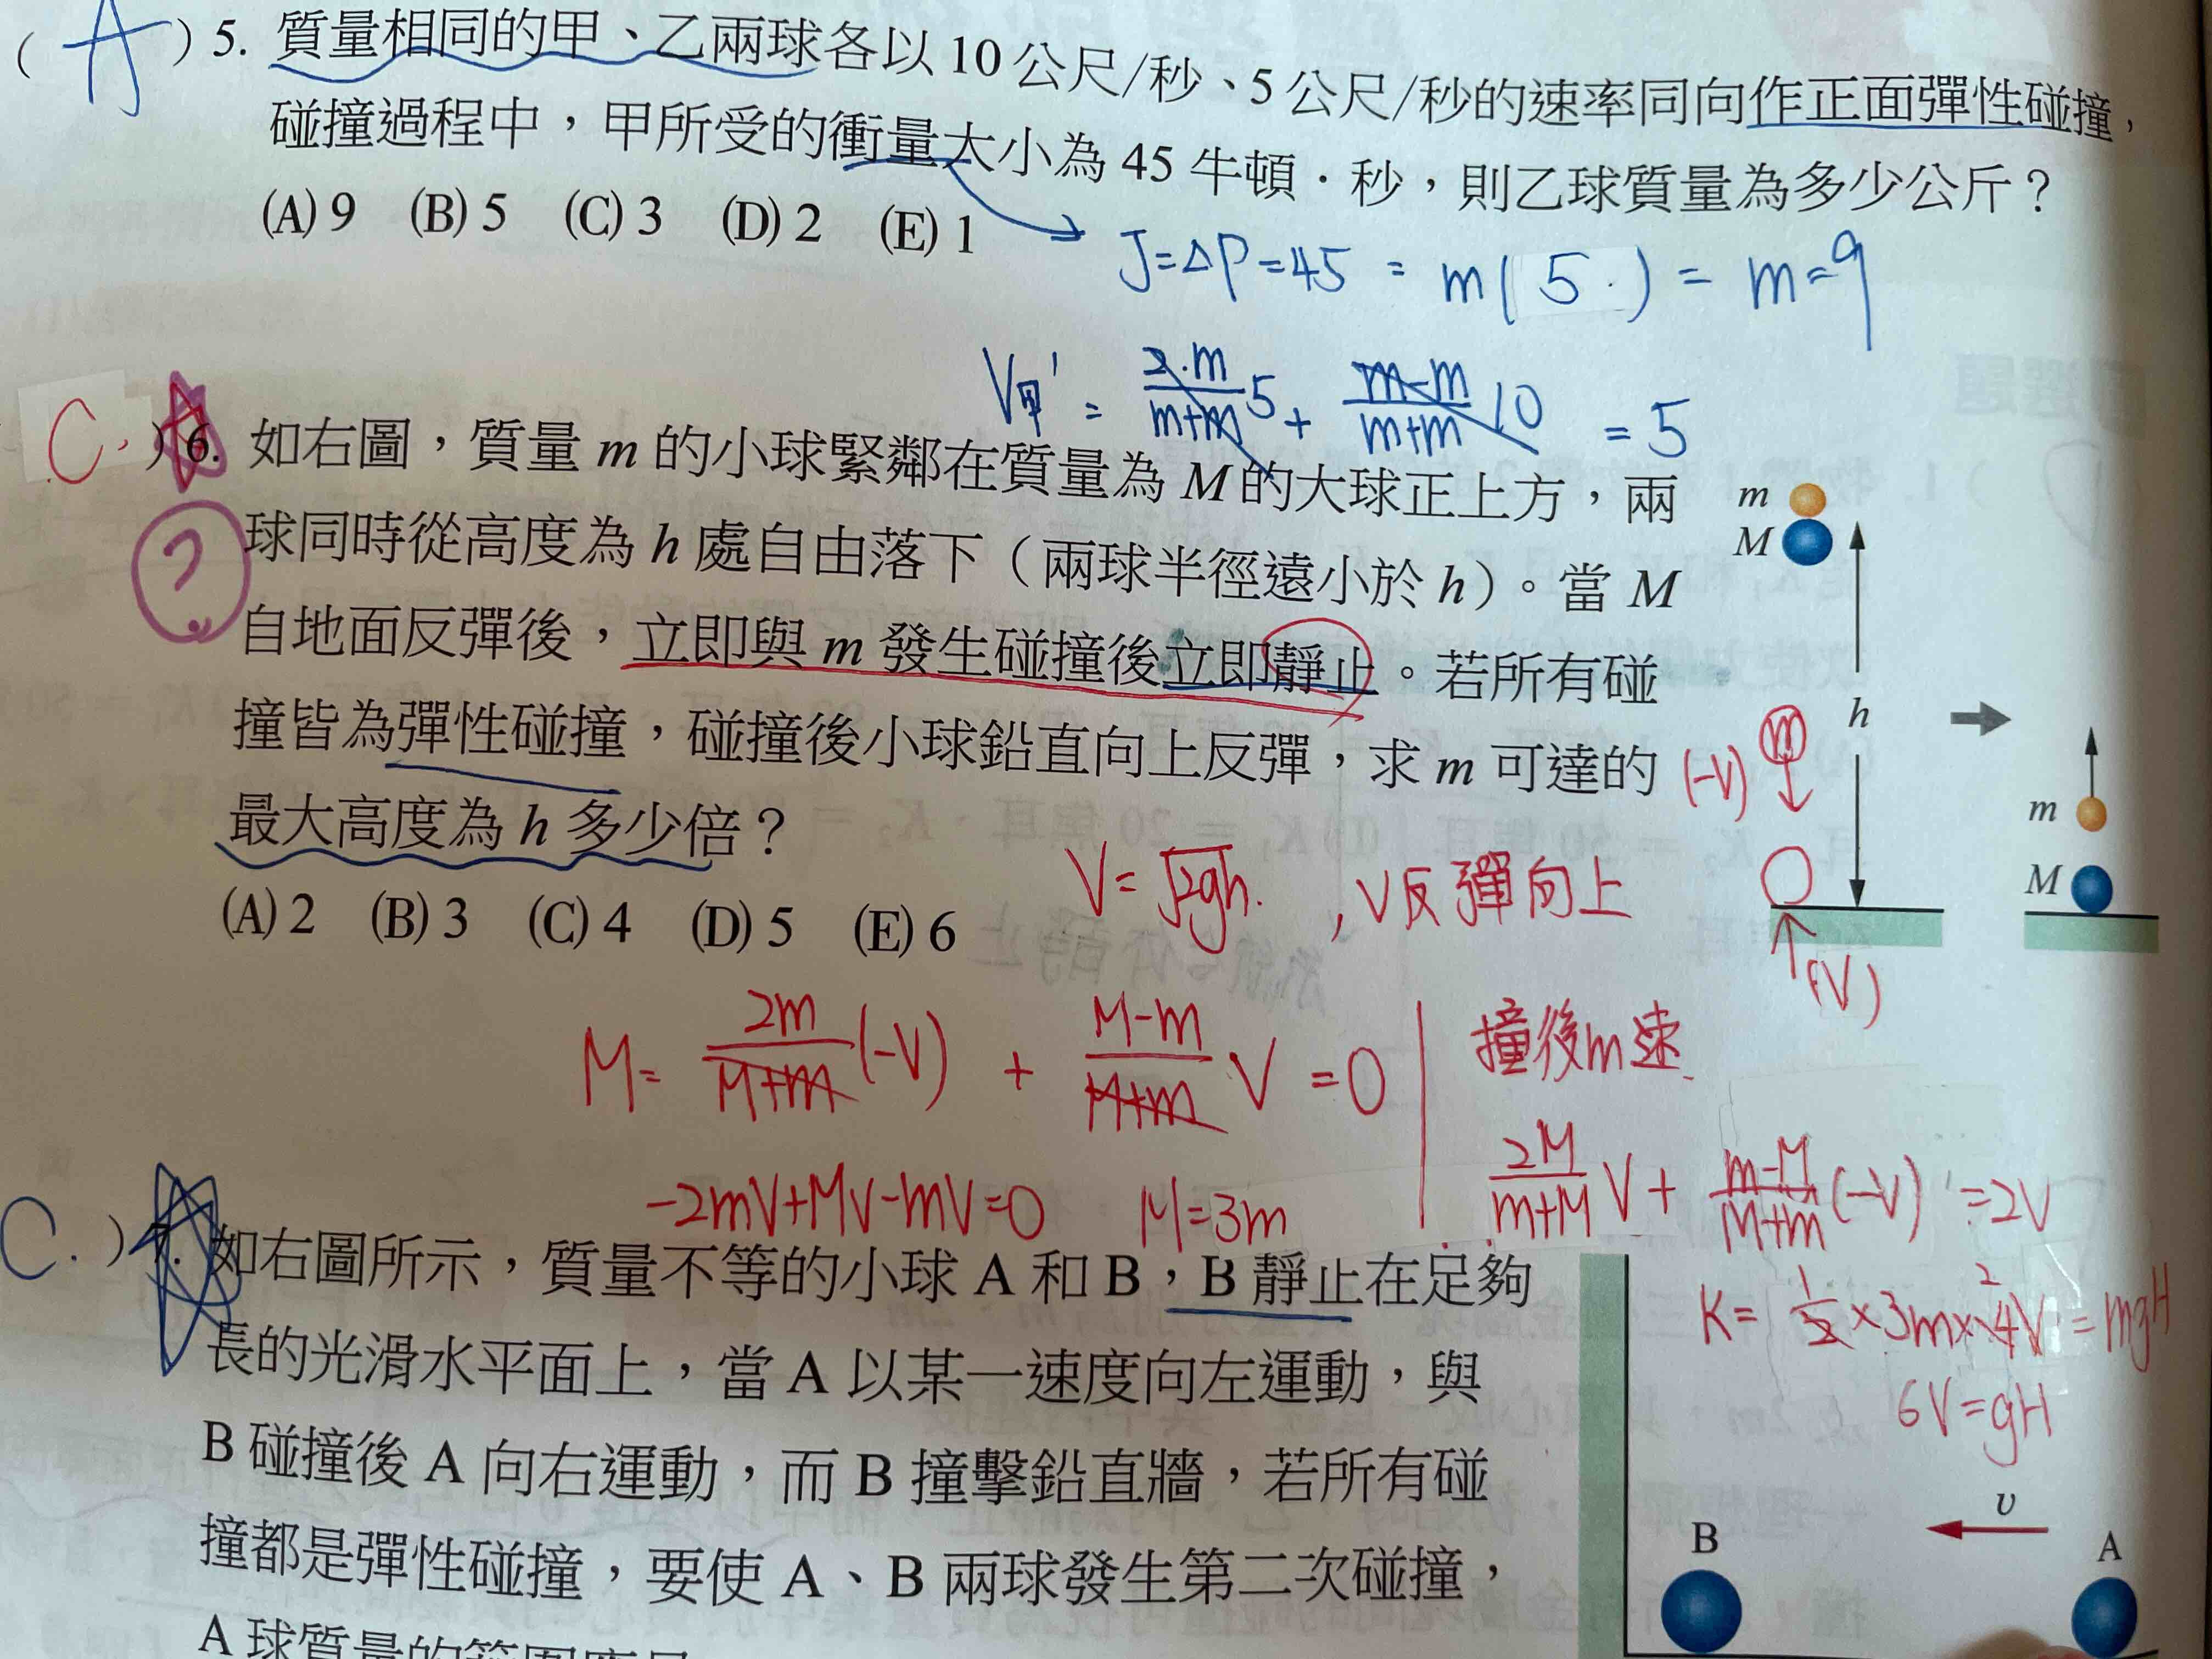 ( A ) 5. 質量相同的甲、乙兩球各以 10 公尺/秒、5 公尺/秒的速率同向作正面彈性碰撞,
碰撞過程中,甲所受的衝量大小為 45 牛頓.秒,則乙球質量為多少公斤?
(A) 9 (B) 5 (C) 3 (D) 2 (E) 1
J=ΔP=45 = m( 5 ) = m=9
V甲' = 2·m/m+m 5 + m-m/m+m 10 = 5
C. ) 6. 如右圖,質量 m 的小球緊鄰在質量為 M 的大球正上方,兩
球同時從高度為 h 處自由落下(兩球半徑遠小於 h)。當 M
自地面反彈後,立即與 m 發生碰撞後立即靜止。若所有碰
撞皆為彈性碰撞,碰撞後小球鉛直向上反彈,求 m 可達的
最大高度為 h 多少倍?
(A) 2 (B) 3 (C) 4 (D) 5 (E) 6
?
m
M
h
m
(-V)
(V)
m
M
V=√2gh. , V反彈向上
M= 2m/M+m (-V) + M-m/M+m V =0
-2mV+MV-mV=0 M=3m
撞後m速
2M/m+M V + m-M/M+m (-V) =2V
K= 1/2 ×3m× 4V² = mgH
6V=gH
C. ) 7. 如右圖所示,質量不等的小球 A 和 B,B 靜止在足夠
長的光滑水平面上,當 A 以某一速度向左運動,與
B 碰撞後 A 向右運動,而 B 撞擊鉛直牆,若所有碰
撞都是彈性碰撞,要使 A、B 兩球發生第二次碰撞,
A 球質量的範圍應是
B
υ
A